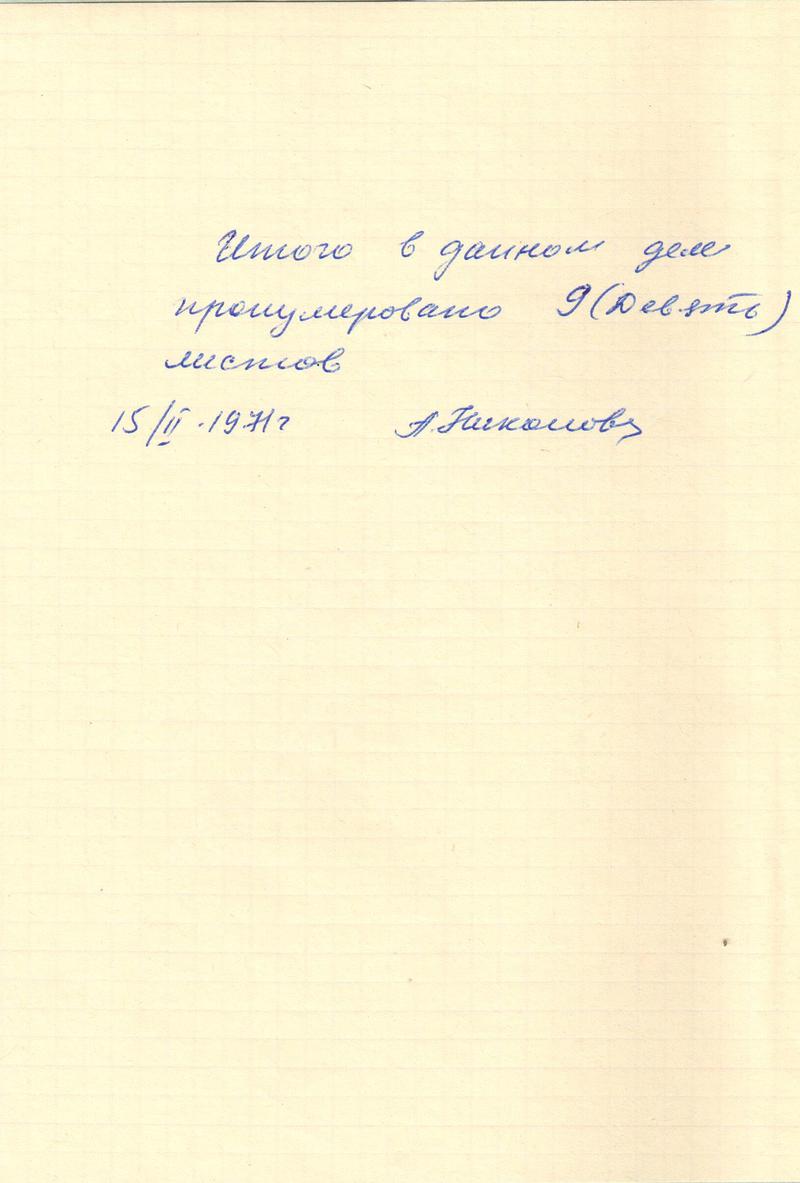 Итого в данном деле
пронумеровано 9 (Девять)
листов
15/II.1971г А.Никонова